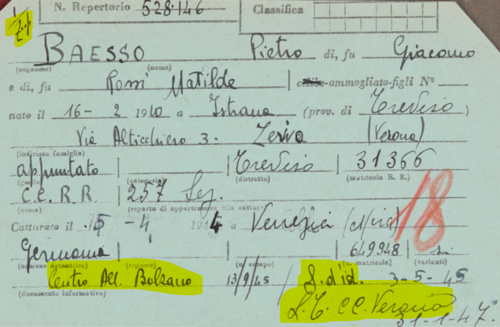 N. Repertorio 528·146 Classifica
BAESSO Pietro di, fu Giacomo
(cognome) (nome)
e di, fu Rossi Matilde celibe-ammogliato-figli N°
nato il 16 - 2 1910 a Istrana (prov. di Treviso
Via Altichiero 3 - Zevio (Verona)
(indirizzo famiglia)
appuntato Treviso 31366
(categoria) (distretto) (matricola R. E.)
C.C. R.R. 257 Sez.
(arma) (reparto di appartenenza alla cattura)
18
Catturato il 15 - 4 a Venezia
Germania 649948 si
(matricola) (varianti)
Centro All. Bolzano 13/9/45 3-5-45
(documento informativo)
L.T. CC. Verona
31-1-47